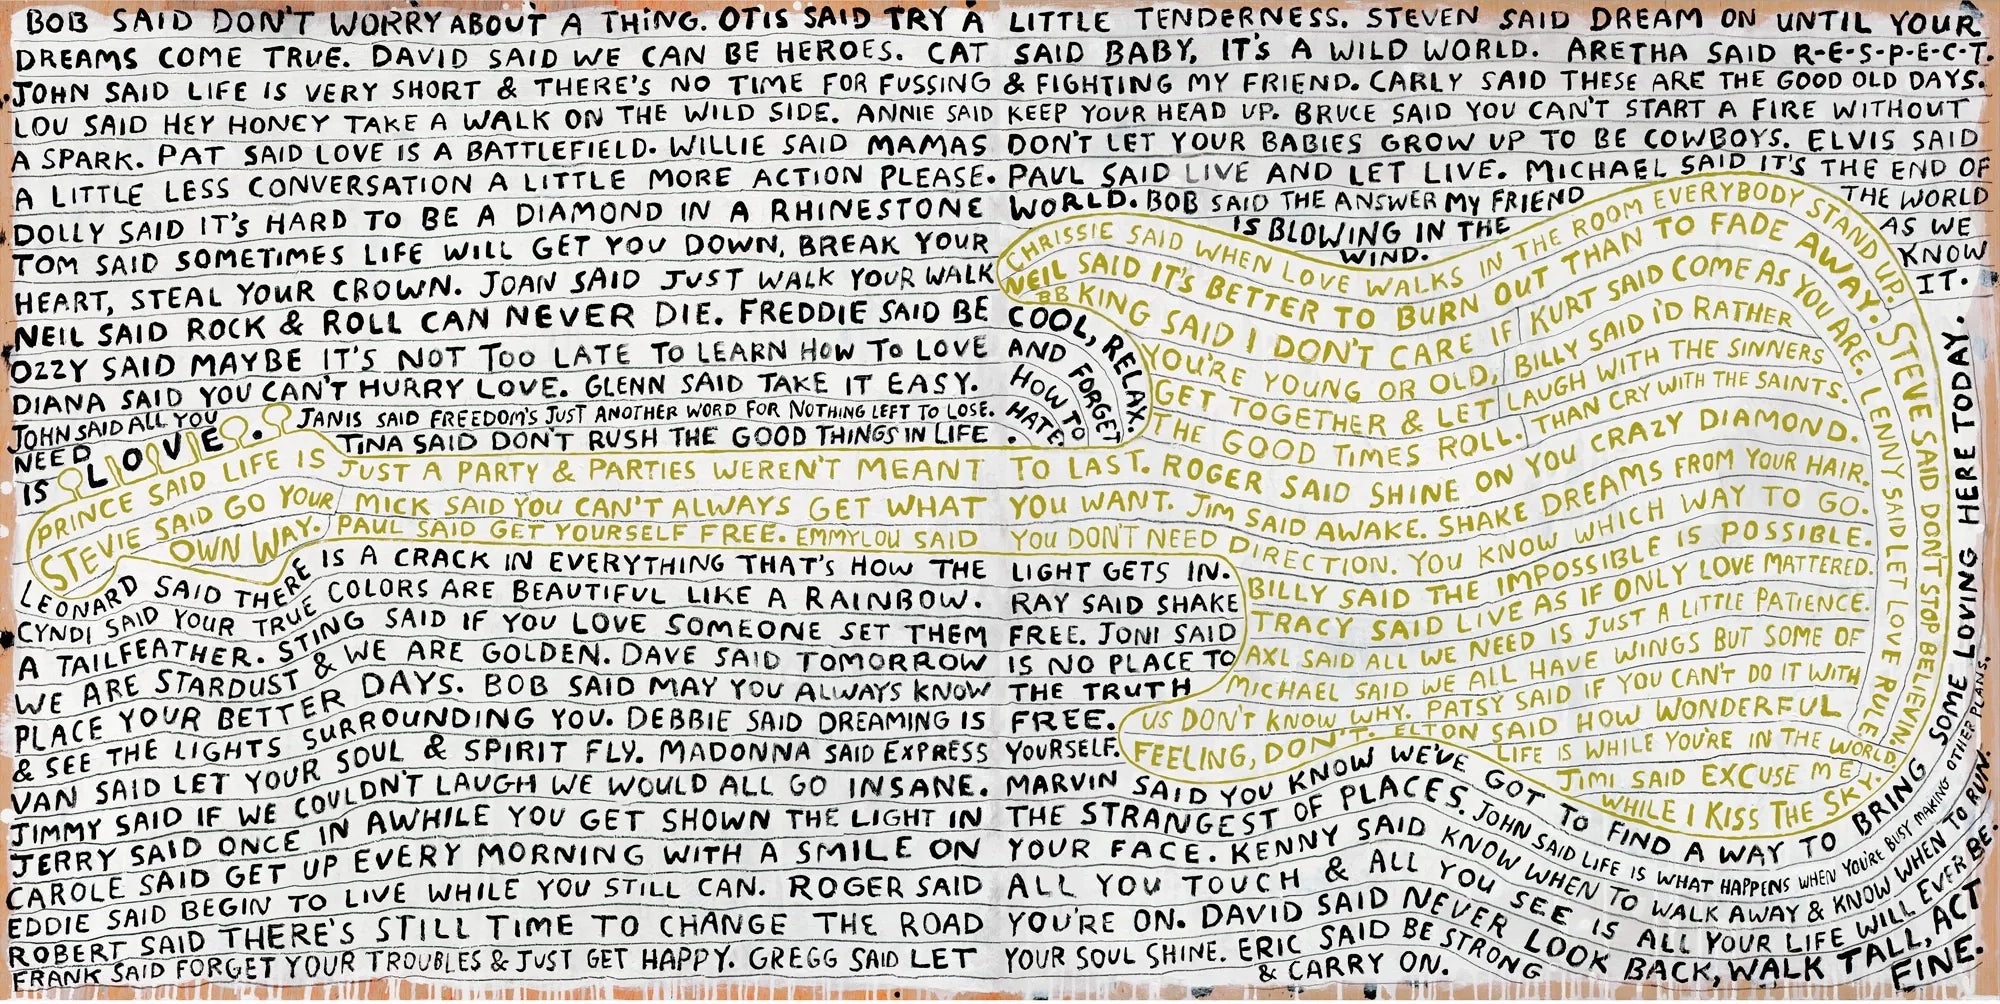 BOB SAID DON'T WORRY ABOUT A THING. OTIS SAID TRY A LITTLE TENDERNESS. STEVEN SAID DREAM ON UNTIL YOUR
DREAMS COME TRUE. DAVID SAID WE CAN BE HEROES. CAT SAID BABY, IT'S A WILD WORLD. ARETHA SAID R-E-S-P-E-C-T.
JOHN SAID LIFE IS VERY SHORT & THERE'S NO TIME FOR FUSSING & FIGHTING MY FRIEND. CARLY SAID THESE ARE THE GOOD OLD DAYS.
LOU SAID HEY HONEY TAKE A WALK ON THE WILD SIDE. ANNIE SAID KEEP YOUR HEAD UP. BRUCE SAID YOU CAN'T START A FIRE WITHOUT
A SPARK. PAT SAID LOVE IS A BATTLEFIELD. WILLIE SAID MAMAS DON'T LET YOUR BABIES GROW UP TO BE COWBOYS. ELVIS SAID
A LITTLE LESS CONVERSATION A LITTLE MORE ACTION PLEASE. PAUL SAID LIVE AND LET LIVE. MICHAEL SAID IT'S THE END OF
THE WORLD
AS WE
KNOW
IT.
DOLLY SAID IT'S HARD TO BE A DIAMOND IN A RHINESTONE WORLD. BOB SAID THE ANSWER MY FRIEND
IS BLOWING IN THE
WIND.
TOM SAID SOMETIMES LIFE WILL GET YOU DOWN, BREAK YOUR
HEART, STEAL YOUR CROWN. JOAN SAID JUST WALK YOUR WALK
NEIL SAID ROCK & ROLL CAN NEVER DIE. FREDDIE SAID BE COOL, RELAX.
OZZY SAID MAYBE IT'S NOT TOO LATE TO LEARN HOW TO LOVE AND FORGET
HOW TO
HATE.
DIANA SAID YOU CAN'T HURRY LOVE. GLENN SAID TAKE IT EASY.
JOHN SAID ALL YOU
NEED
IS LOVE.
JANIS SAID FREEDOM'S JUST ANOTHER WORD FOR NOTHING LEFT TO LOSE.
TINA SAID DON'T RUSH THE GOOD THINGS IN LIFE.
CHRISSIE SAID WHEN LOVE WALKS IN THE ROOM EVERYBODY STAND UP.
NEIL SAID IT'S BETTER TO BURN OUT THAN TO FADE AWAY.
STEVE SAID DON'T STOP BELIEVIN.
BB KING SAID I DON'T CARE IF
YOU'RE YOUNG OR OLD,
GET TOGETHER & LET
THE GOOD TIMES ROLL.
KURT SAID COME AS YOU ARE.
LENNY SAID LET LOVE RULE.
BILLY SAID I'D RATHER
LAUGH WITH THE SINNERS
THAN CRY WITH THE SAINTS.
PRINCE SAID LIFE IS JUST A PARTY & PARTIES WEREN'T MEANT TO LAST. ROGER SAID SHINE ON YOU CRAZY DIAMOND.
STEVIE SAID GO YOUR
OWN WAY.
MICK SAID YOU CAN'T ALWAYS GET WHAT YOU WANT. JIM SAID AWAKE. SHAKE DREAMS FROM YOUR HAIR.
PAUL SAID GET YOURSELF FREE. EMMYLOU SAID YOU DON'T NEED DIRECTION. YOU KNOW WHICH WAY TO GO.
BILLY SAID THE IMPOSSIBLE IS POSSIBLE.
TRACY SAID LIVE AS IF ONLY LOVE MATTERED.
AXL SAID ALL WE NEED IS JUST A LITTLE PATIENCE.
MICHAEL SAID WE ALL HAVE WINGS BUT SOME OF
US DON'T KNOW WHY. PATSY SAID IF YOU CAN'T DO IT WITH
FEELING, DON'T. ELTON SAID HOW WONDERFUL
LIFE IS WHILE YOU'RE IN THE WORLD.
JIMI SAID EXCUSE ME
WHILE I KISS THE SKY.
LEONARD SAID THERE IS A CRACK IN EVERYTHING THAT'S HOW THE LIGHT GETS IN.
CYNDI SAID YOUR TRUE COLORS ARE BEAUTIFUL LIKE A RAINBOW. RAY SAID SHAKE
A TAILFEATHER. STING SAID IF YOU LOVE SOMEONE SET THEM FREE. JONI SAID
WE ARE STARDUST & WE ARE GOLDEN. DAVE SAID TOMORROW IS NO PLACE TO
PLACE YOUR BETTER DAYS. BOB SAID MAY YOU ALWAYS KNOW THE TRUTH
& SEE THE LIGHTS SURROUNDING YOU. DEBBIE SAID DREAMING IS FREE.
VAN SAID LET YOUR SOUL & SPIRIT FLY. MADONNA SAID EXPRESS YOURSELF.
JIMMY SAID IF WE COULDN'T LAUGH WE WOULD ALL GO INSANE. MARVIN SAID YOU KNOW WE'VE GOT TO FIND A WAY TO BRING SOME LOVING HERE TODAY.
JERRY SAID ONCE IN AWHILE YOU GET SHOWN THE LIGHT IN THE STRANGEST OF PLACES. JOHN SAID LIFE IS WHAT HAPPENS WHEN YOU'RE BUSY MAKING OTHER PLANS.
CAROLE SAID GET UP EVERY MORNING WITH A SMILE ON YOUR FACE. KENNY SAID KNOW WHEN TO WALK AWAY & KNOW WHEN TO RUN.
EDDIE SAID BEGIN TO LIVE WHILE YOU STILL CAN. ROGER SAID ALL YOU TOUCH & ALL YOU SEE IS ALL YOUR LIFE WILL EVER BE.
ROBERT SAID THERE'S STILL TIME TO CHANGE THE ROAD YOU'RE ON. DAVID SAID NEVER LOOK BACK, WALK TALL, ACT
FINE.
FRANK SAID FORGET YOUR TROUBLES & JUST GET HAPPY. GREGG SAID LET YOUR SOUL SHINE. ERIC SAID BE STRONG
& CARRY ON.